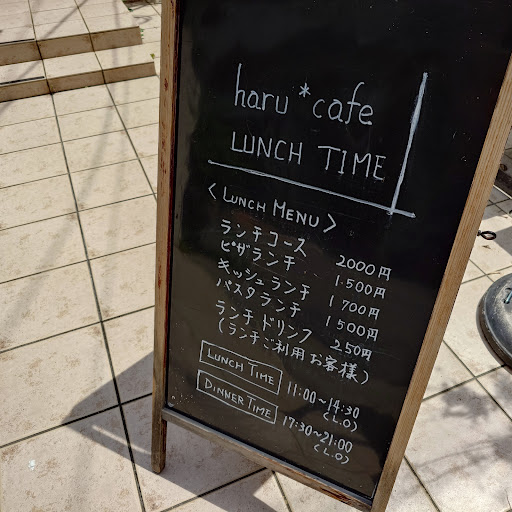 haru*cafe
LUNCH TIME
〈LUNCH MENU〉
ランチコース 2000円
ピザランチ 1.500円
キッシュランチ 1700円
パスタランチ 1500円
ランチドリンク 250円
(ランチご利用お客様)
LUNCH TIME 11:00~14:30
(L.O)
DINNER TIME 17:30~21:00
(L.O)